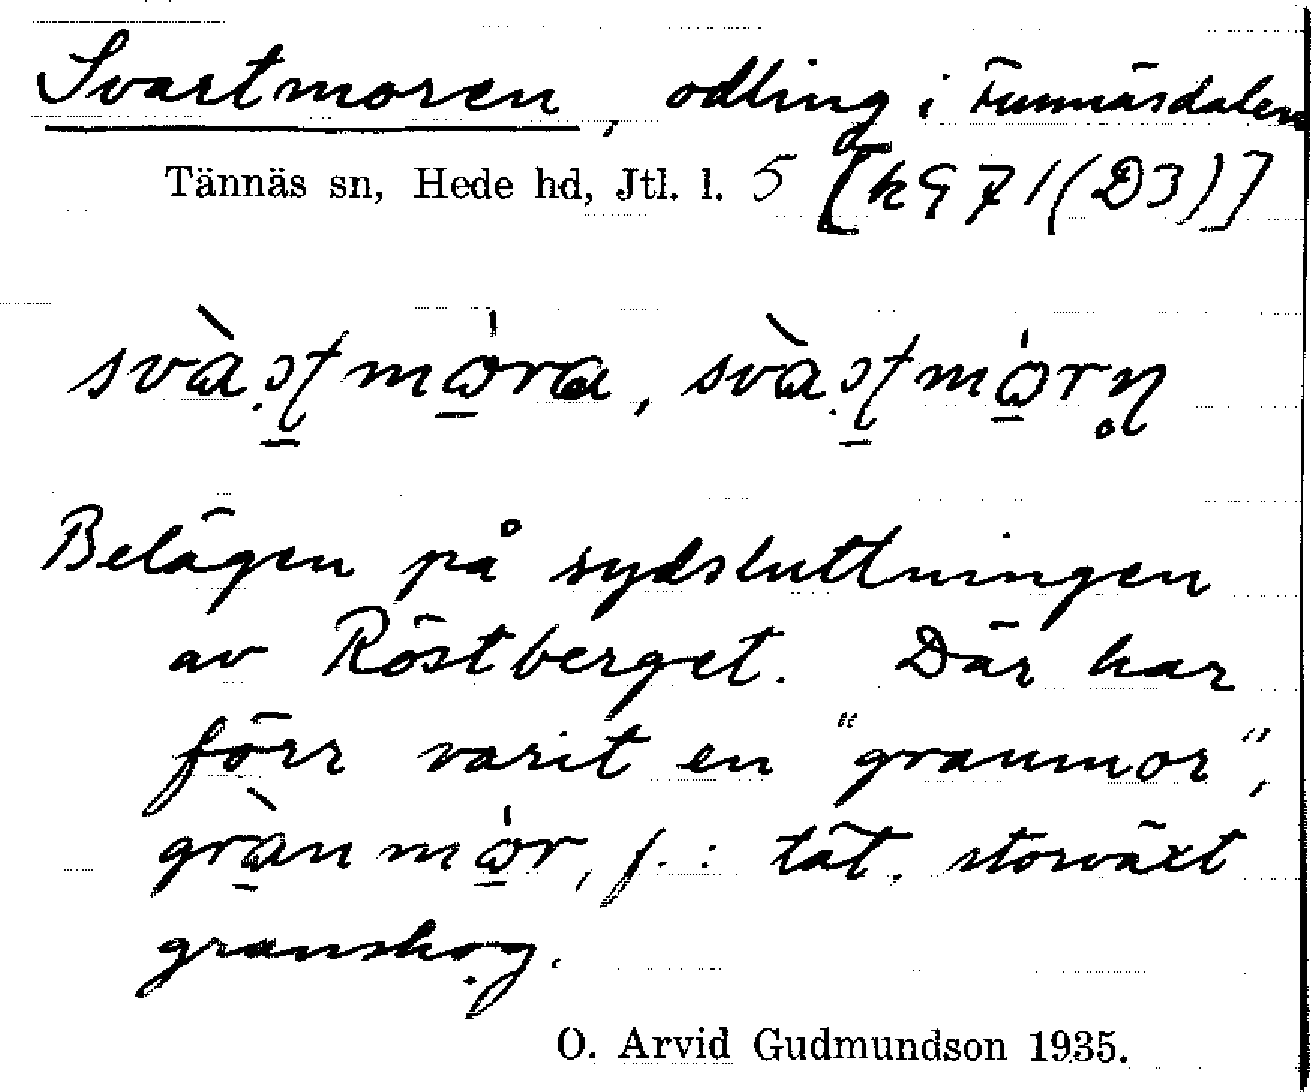 Svartmoren, odling i Funnäsdalen
Tännäs sn, Hede hd, Jtl. l. 5 [k971(D3)]
Belägen på sydsluttningen
av Röstberget. Där har
förr varit en "granmor",
f.: tät, storväxt
granskog.
O. Arvid Gudmundson 1935.